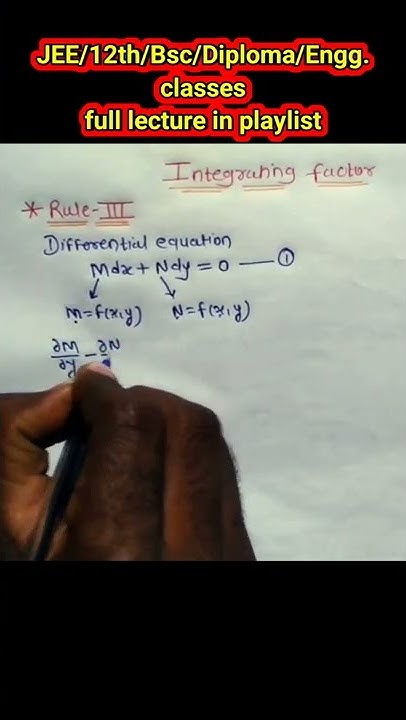 JEE/12th/Bsc/Diploma/Engg.
classes
full lecture in playlist
Integrating factor
* Rule-III
Differential equation
Mdx + Ndy = 0 —— ①
M=f(x,y) N=f(x,y)
∂M/∂y - ∂N